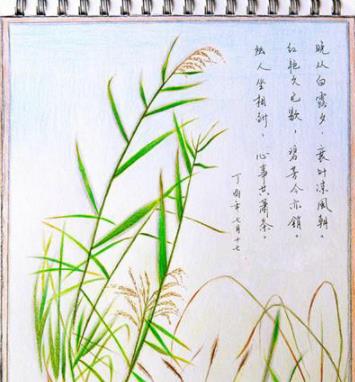 晚从白露夕，衰叶凉风朝。
红艳久已歇，碧芳今亦销。
幽人坐相对，心事共萧条。
丁酉年七月十七